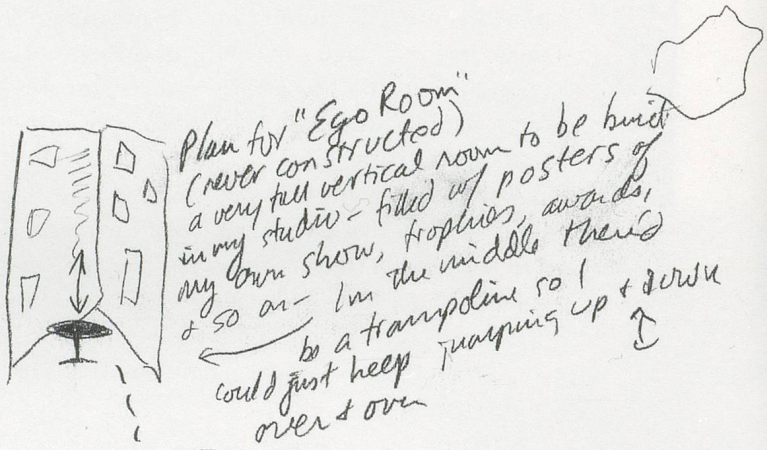 Plan for "Ego Room"
(never constructed)
a very tall vertical room to be built
in my studio - filled w/ posters of
my own show, trophies, awards,
+ so on - In the middle there'd
be a trampoline so I
could just keep jumping up + down
over + over